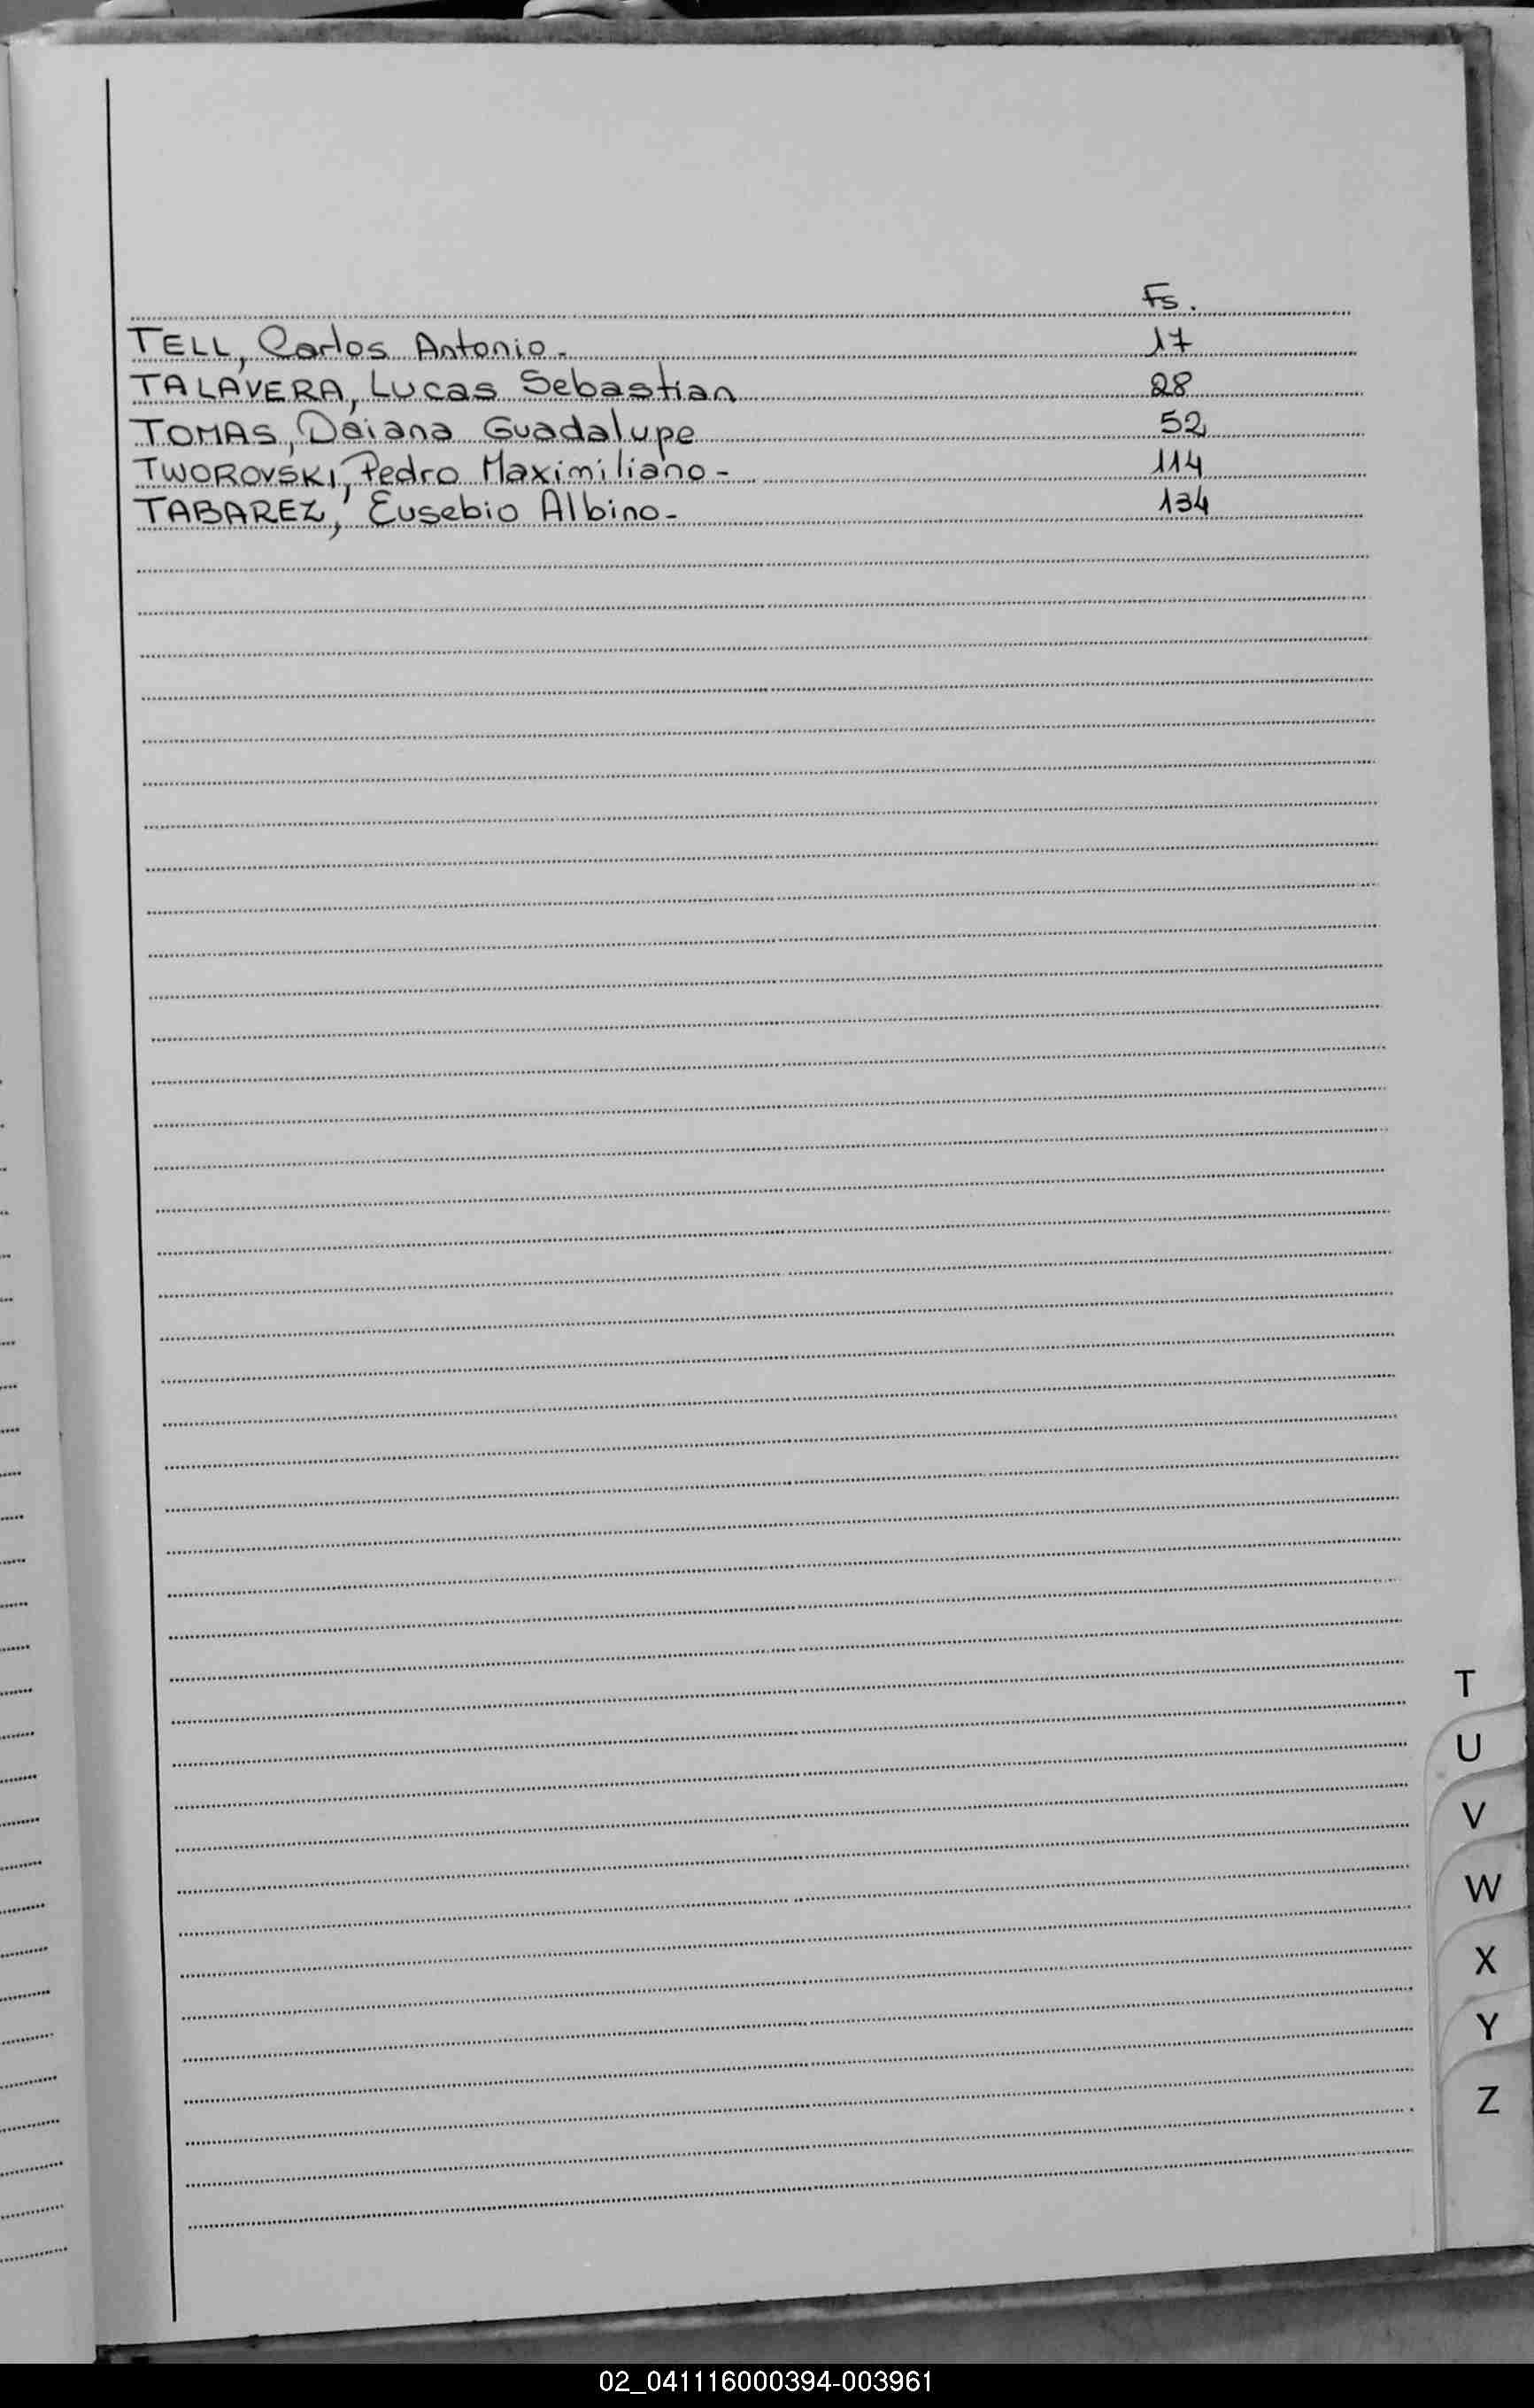 Fs.
TELL, Carlos Antonio.- 17
TALAVERA, Lucas Sebastian 28
TOMAS, Daiana Guadalupe 52
TWOROVSKI, Pedro Maximiliano- 114
TABAREZ, Eusebio Albino- 134
T
U
V
W
X
Y
Z
02_041116000394-003961